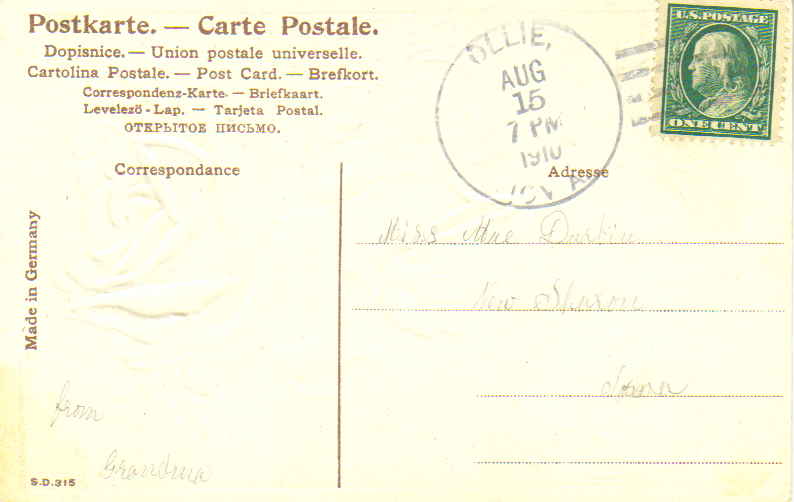 Postkarte. — Carte Postale.
Dopisnice. — Union postale universelle.
Cartolina Postale. — Post Card. — Brefkort.
Correspondenz-Karte. — Briefkaart.
Levelező-Lap. — Tarjeta Postal.
ОТКРЫТОЕ ПИСЬМО.
OLLIE,
AUG
15
7 PM
1910
IOWA
U.S. POSTAGE
ONE CENT
Correspondance
Adresse
Made in Germany
Miss Mae Durbin
New Sharon
Iowa
from
Grandma
S.D.315